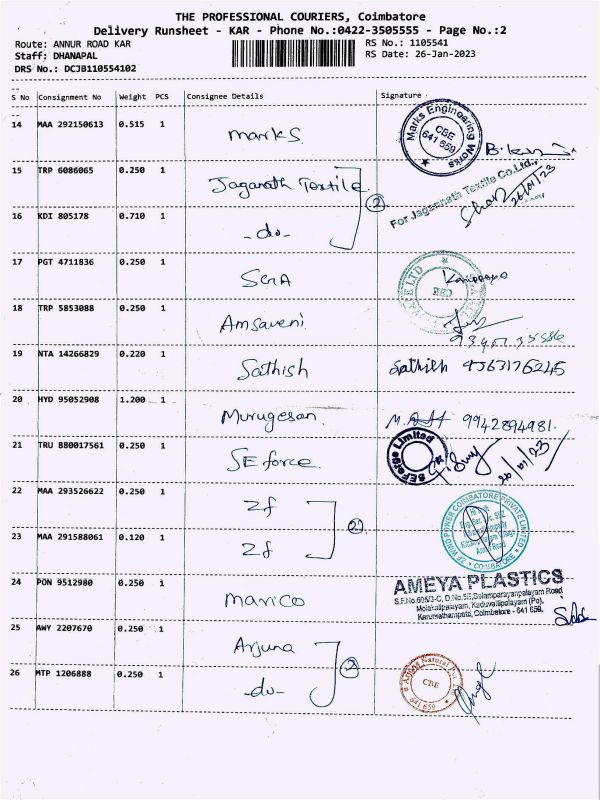 THE PROFESSIONAL COURIERS, Coimbatore
Delivery Runsheet - KAR - Phone No.:0422-3505555 - Page No.:2
Route: ANNUR ROAD KAR
RS No.: 1105541
Staff: DHANAPAL
RS Date: 26-Jan-2023
DRS No.: DCJB110554102
S No Consignment No Weight PCS Consignee Details Signature
14 MAA 292150613 0.515 1 Marks Marks Engineering Works CBE 641 659
15 TRP 6086065 0.250 1 Jaganath Textile For Jagannath Textile Co.Ltd., 26/01/23
16 KDI 805178 0.710 1 -do- 2
17 PGT 4711836 0.250 1 CBE
18 TRP 5853088 0.250 1 Amsaveni
19 NTA 14266829 0.220 1 Sathish Sathish 9563176245
20 HYD 95052908 1.200 1 Murugesan 9942894981.
21 TRU 880017561 0.250 1 SE force SEForge Limited 26/01/23
22 MAA 293526622 0.250 1 Zf 2
23 MAA 291588061 0.120 1 Zf ZF WIND POWER COIMBATORE PRIVATE LIMITED COIMBATORE
24 PON 9512980 0.250 1 Marico AMEYA PLASTICS
S.F.No.605/3-C, D.No.5E, Selamparayanpalayam Road
Molakalipalayam, Kaduvettipalayam (Po),
Karumathampatti, Coimbatore - 641 659.
25 AWY 2207670 0.250 1 Arjuna 2
26 MTP 1206888 0.250 1 -do- Arjuna Natural Pvt. Ltd. CBE 641 659